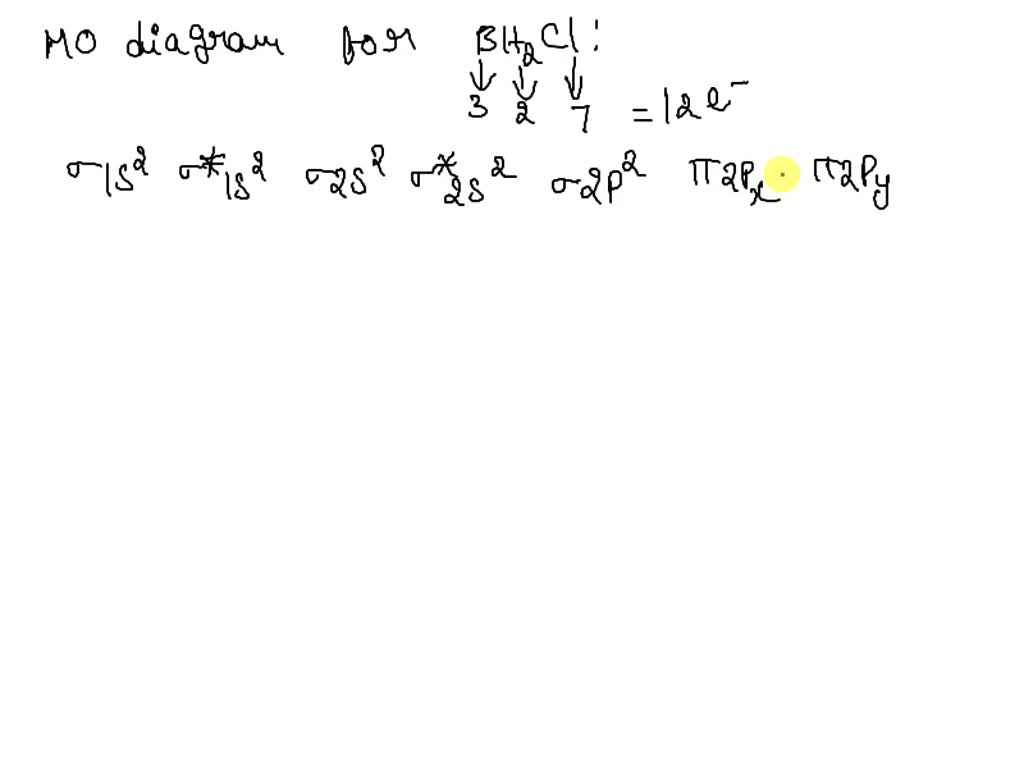 MO diagram for BH₂Cl:
↓ ↓ ↓
3 2 7 = 12 e⁻
σ1s² σ*1s² σ2s² σ*2s² σ2p² π2Pₓ π2Py